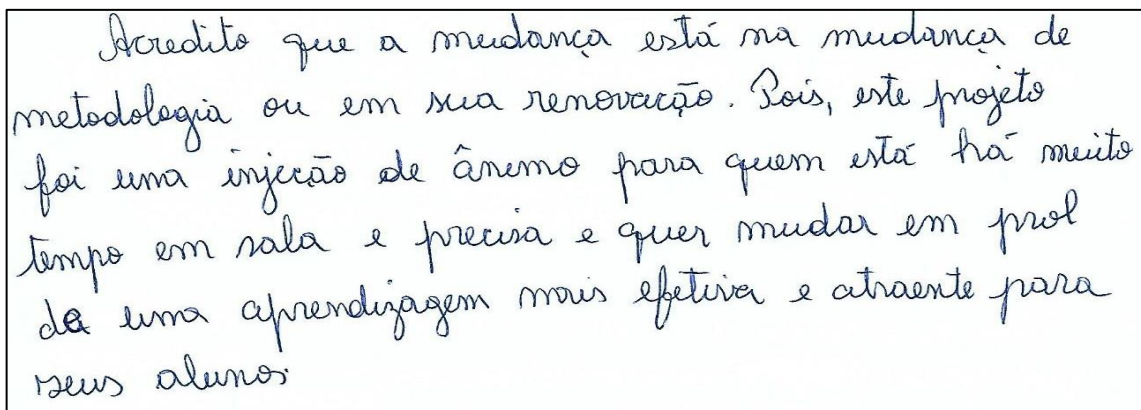 Acredito que a mudança está na mudança de
metodologia ou em sua renovação. Pois, este projeto
foi uma injeção de ânimo para quem está há muito
tempo em sala e precisa e quer mudar em prol
de uma aprendizagem mais efetiva e atraente para
seus alunos.